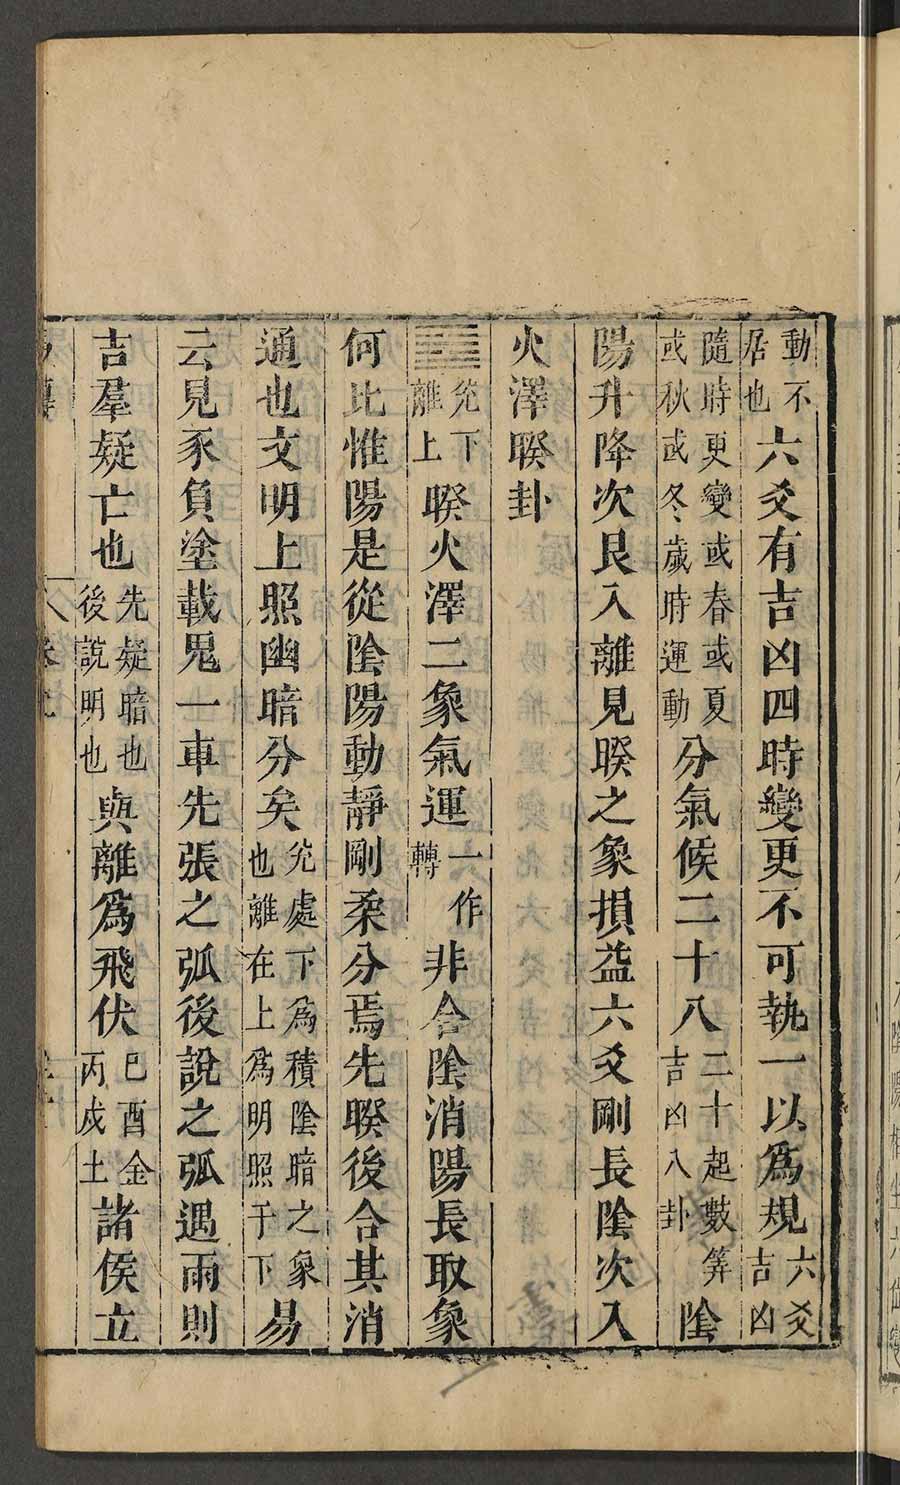 動不居也六爻有吉凶四時變更不可執一以爲規六爻吉凶
隨時更變或春或夏或秋或冬歲時運動分氣候二十八二十起數筭吉凶八卦陰
陽升降次艮入離見睽之象損益六爻剛長陰次入
火澤睽卦
䷥兊下離上睽火澤二象氣運一作轉非合陰消陽長取象
何比惟陽是從陰陽動靜剛柔分焉先睽後合其消
通也文明上照幽暗分矣兊處下爲積陰暗之象也離在上爲明照于下易
云見豕負塗載鬼一車先張之弧後說之弧遇雨則
吉羣疑亡也先疑暗也後說明也與離爲飛伏巳酉金丙戌土諸侯立